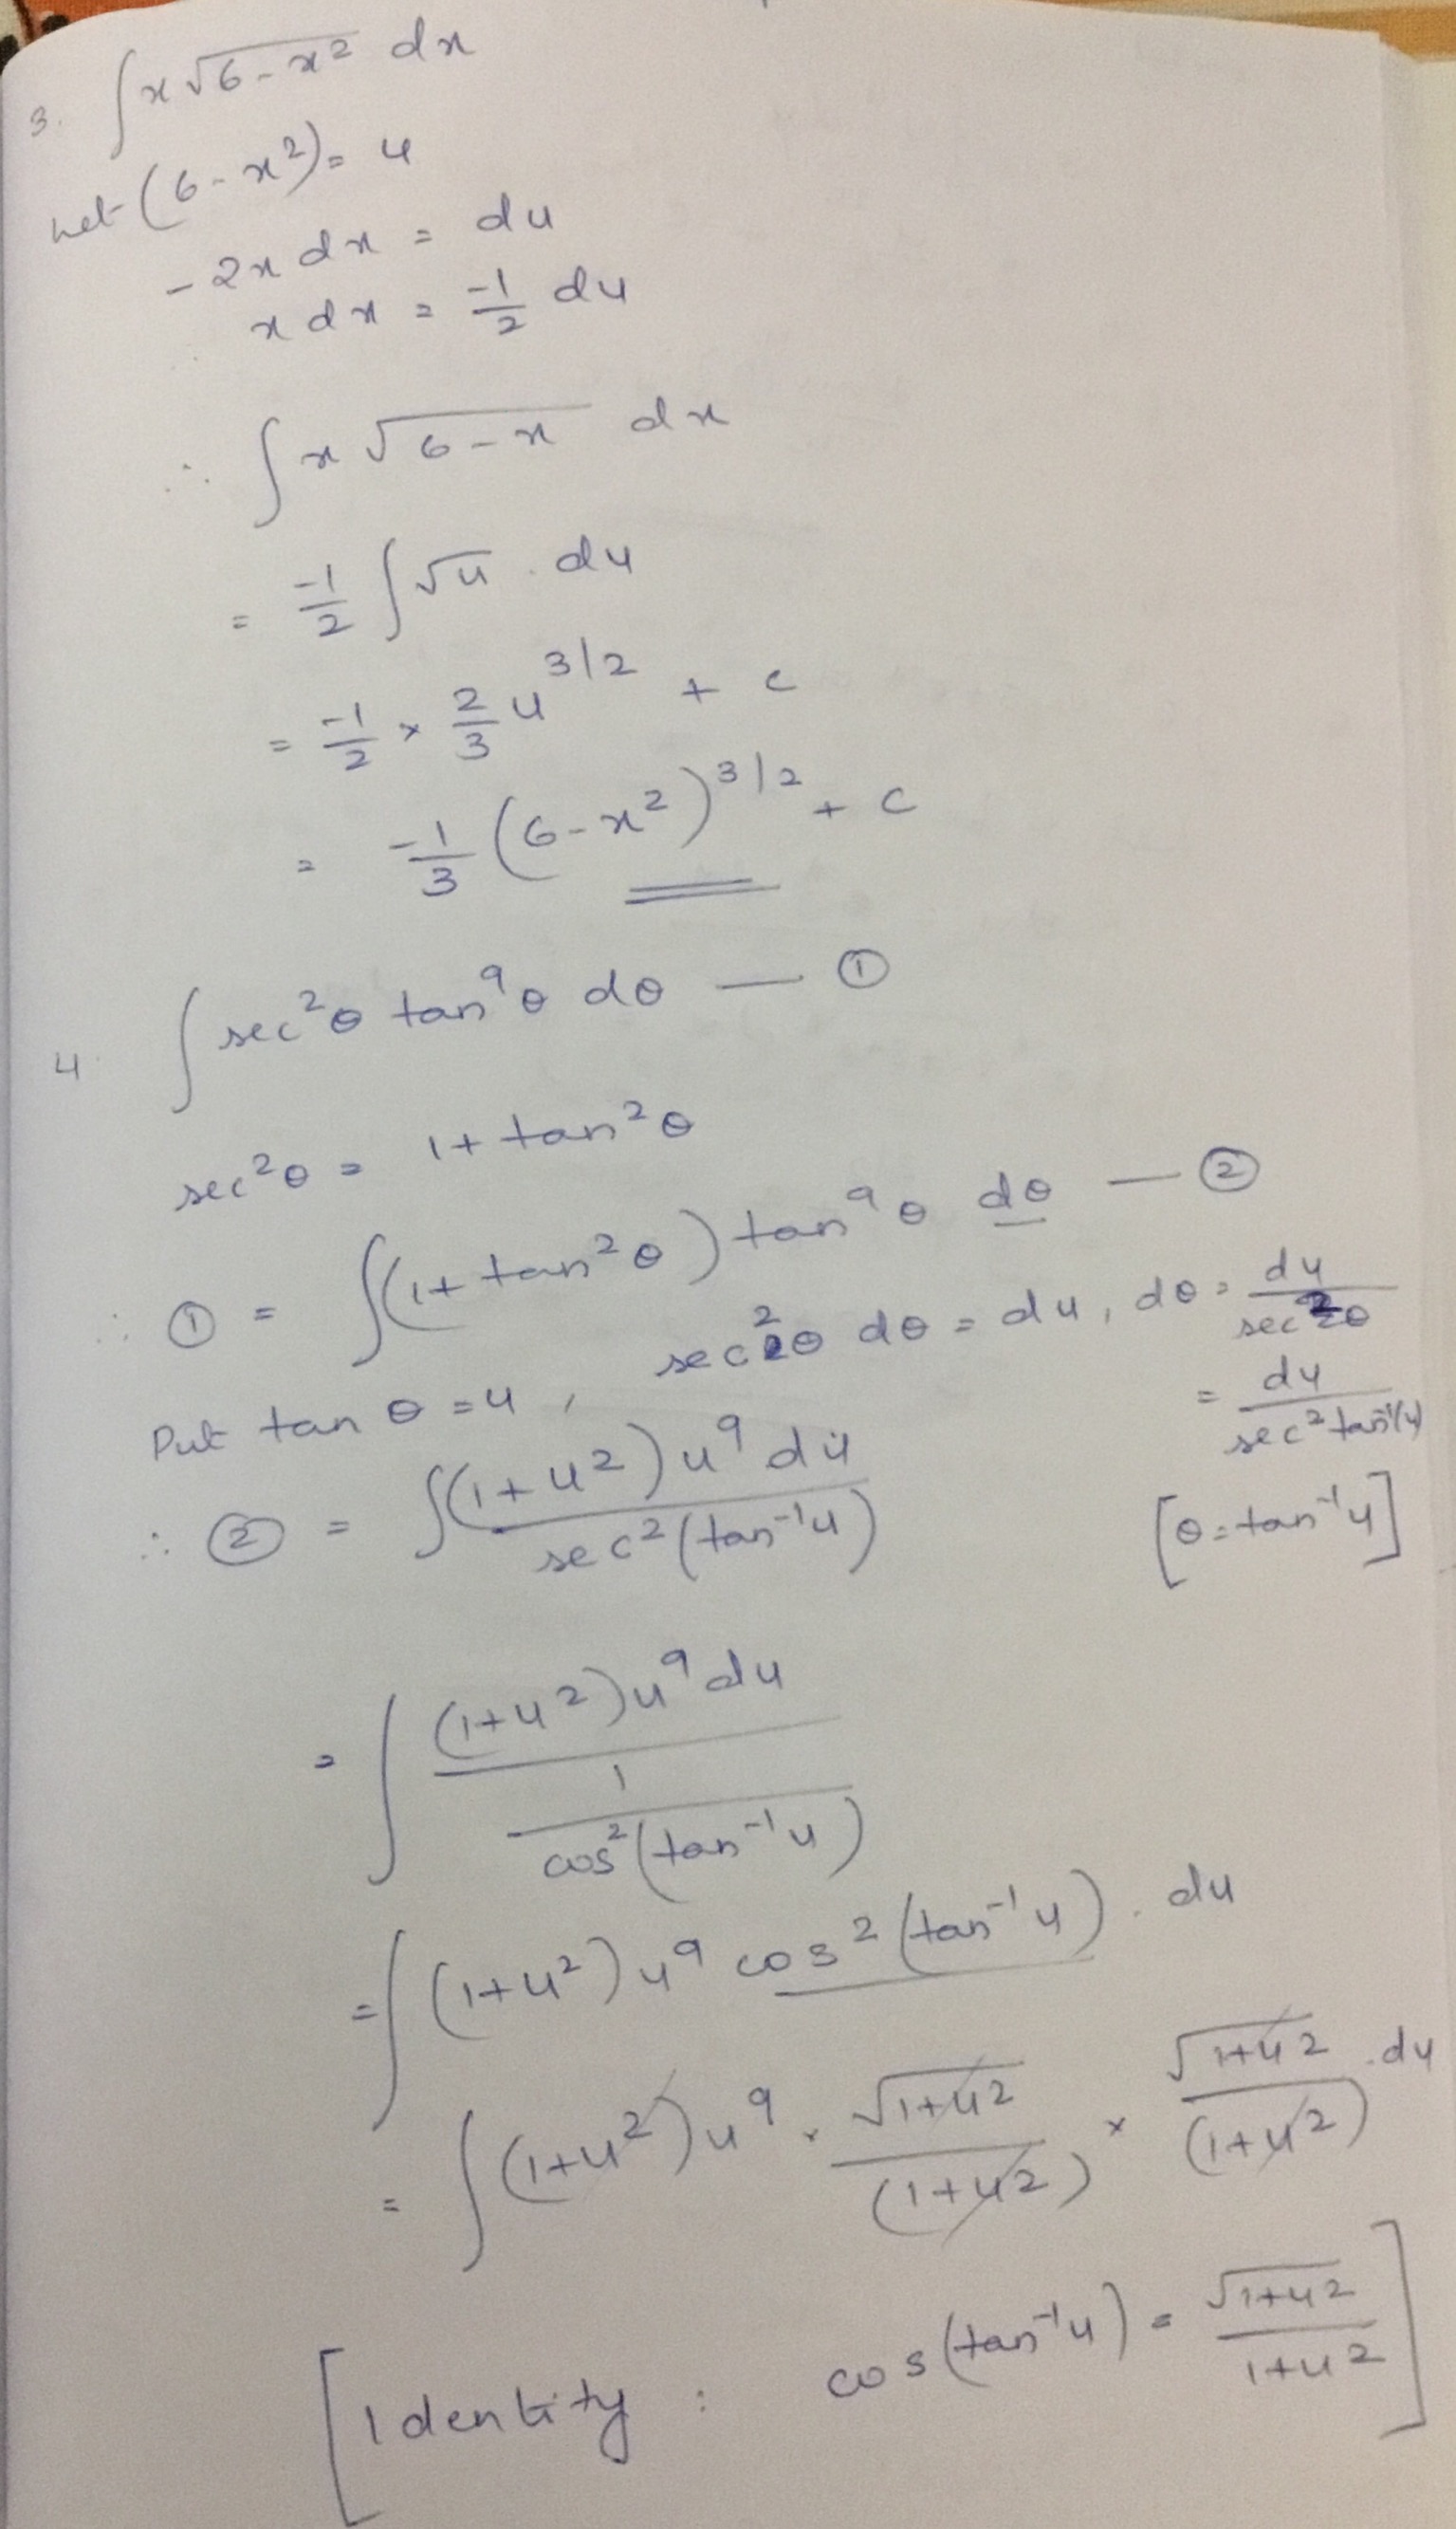 3. ∫x√(6-x²) dx
Let (6-x²) = u
-2x dx = du
x dx = -1/2 du
∴ ∫x√(6-x) dx
= -1/2 ∫√u . du
= -1/2 × 2/3 u^3/2 + c
= -1/3 (6-x²)^3/2 + c
4. ∫sec²θ tan⁹θ dθ — ①
sec²θ = 1 + tan²θ
∴ ① = ∫(1 + tan²θ) tan⁹θ dθ — ②
Put tan θ = u, sec²θ dθ = du, dθ = du/sec²θ
= du/sec² tan⁻¹(u)
∴ ② = ∫(1+u²)u⁹ du/sec²(tan⁻¹u) [θ = tan⁻¹u]
= ∫ (1+u²)u⁹ du / (1/cos²(tan⁻¹u))
= ∫(1+u²)u⁹ cos²(tan⁻¹u) . du
= ∫(1+u²)u⁹ . √(1+u²)/(1+u²) × √(1+u²)/(1+u²) . du
[Identity : cos(tan⁻¹u) = √(1+u²)/1+u²]